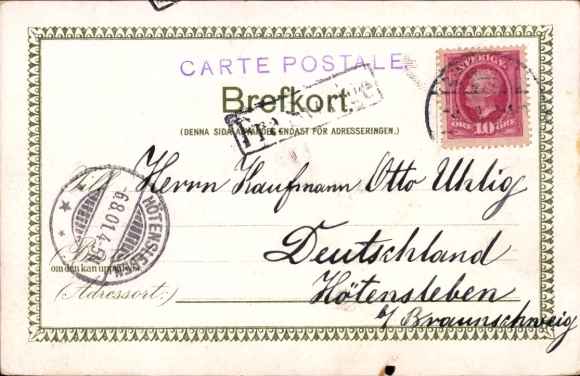 CARTE POSTALE
Brefkort.
(DENNA SIDA ANVÄNDES ENDAST FÖR ADRESSERINGEN.)
SVERIGE
ÖRE 10 ÖRE
Till Herrn Kaufmann Otto Uhlig
HÖTENSLEBEN
6.8.01.4-5N
Deutschland
om den kan uppgifvas
(Adressort:)
Hötensleben
b/ Braunschweig